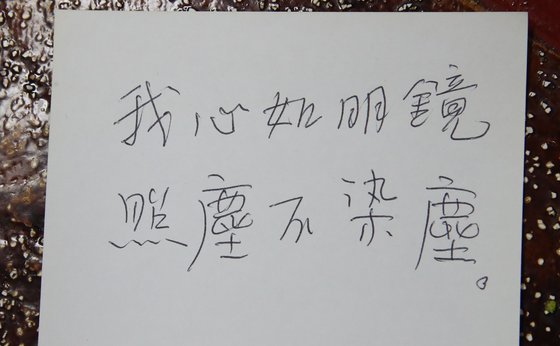 我心如明鏡
照塵不染塵。